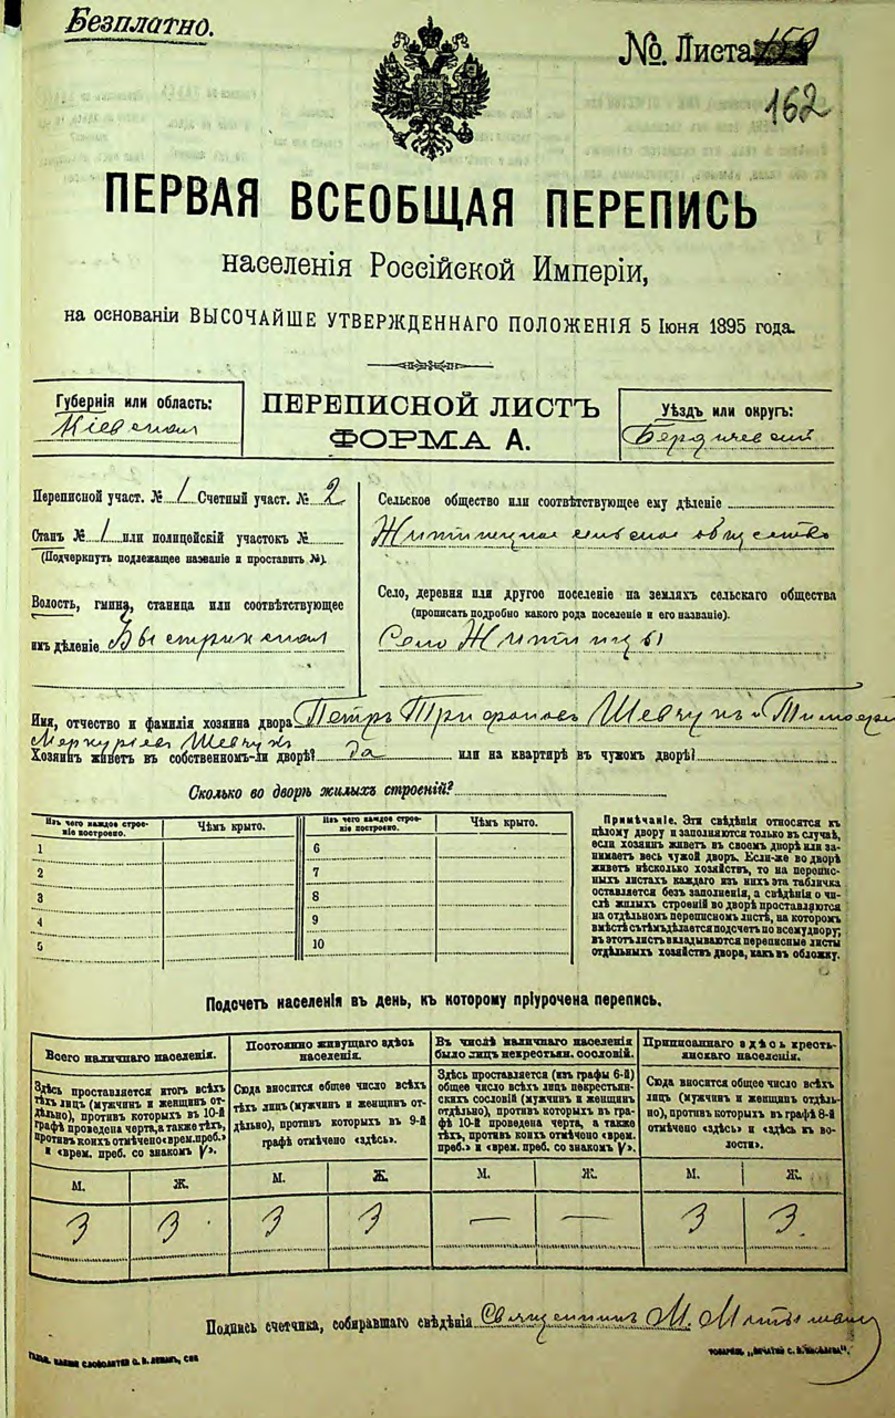 Безплатно.
№ Листа
162
ПЕРВАЯ ВСЕОБЩАЯ ПЕРЕПИСЬ
населенія Россійской Имперіи,
на основаніи ВЫСОЧАЙШЕ УТВЕРЖДЕННАГО ПОЛОЖЕНІЯ 5 Іюня 1895 года.
Губернія или область:
Кіевская
ПЕРЕПИСНОЙ ЛИСТЪ
ФОРМА А.
Уѣздъ или округъ:
Бердичевский
Переписной участ. № 1 Счетный участ. № 2
Станъ № 1 или полицейскій участокъ №
(Подчеркнуть подлежащее названіе и проставить №).
Волость, гмина, станица или соотвѣтствующее
имъ дѣленіе Быстрикская
Сельское общество или соотвѣтствующее ему дѣленіе
общество
Село, деревня или другое поселеніе на земляхъ сельскаго общества
(прописать подробно какого рода поселеніе и его названіе).
Село Житинцы
Имя, отчество и фамилія хозяина двора Петръ Трифоновъ Шевчукъ и Тимофей
Меркуріевъ Шевчукъ
Хозяинъ живетъ въ собственномъ-ли дворѣ? да или на квартирѣ въ чужомъ дворѣ?
Сколько во дворѣ жилыхъ строеній?
Изъ чего каждое строеніе построено.
Чѣмъ крыто.
Изъ чего каждое строеніе построено.
Чѣмъ крыто.
1
2
3
4
5
6
7
8
9
10
Примѣчаніе. Эти свѣдѣнія относятся къ
цѣлому двору и заполняются только въ случаѣ,
если хозяинъ живетъ въ своемъ дворѣ или за-
нимаетъ весь чужой дворъ. Если-же во дворѣ
живетъ нѣсколько хозяйствъ, то на перепис-
ныхъ листахъ каждаго изъ нихъ эта табличка
оставляется безъ заполненія, а свѣдѣнія о чи-
слѣ жилыхъ строеній во дворѣ проставляются
на отдѣльномъ переписномъ листѣ, на которомъ
вмѣстѣ съ тѣмъ дѣлается подсчетъ по всему двору;
въ этотъ листъ вкладываются переписные листы
отдѣльныхъ хозяйствъ двора, какъ въ обложку.
Подсчетъ населенія въ день, къ которому пріурочена перепись.
Всего наличнаго населенія.
Здѣсь проставляется итогъ всѣхъ
тѣхъ лицъ (мужчинъ и женщинъ от-
дѣльно), противъ которыхъ въ 10-й
графѣ проведена черта, а также тѣхъ,
противъ коихъ отмѣчено «врем. преб.»
и «врем. преб. со знакомъ V».
Постоянно живущаго здѣсь
населенія.
Сюда вносится общее число всѣхъ
тѣхъ лицъ (мужчинъ и женщинъ от-
дѣльно), противъ которыхъ въ 9-й
графѣ отмѣчено «здѣсь».
Въ числѣ наличнаго населенія
было лицъ некрестьян. сословій.
Здѣсь проставляется (изъ графы 6-й)
общее число всѣхъ лицъ некрестьян-
скихъ сословій (мужчинъ и женщинъ
отдѣльно), противъ которыхъ въ гра-
фѣ 10-й проведена черта, а также
тѣхъ, противъ коихъ отмѣчено «врем.
преб.» и «врем. преб. со знакомъ V».
Приписаннаго здѣсь кресть-
янскаго населенія.
Сюда вносится общее число всѣхъ
лицъ (мужчинъ и женщинъ отдѣль-
но), противъ которыхъ въ графѣ 8-й
отмѣчено «здѣсь» и «здѣсь къ во-
лости».
М. Ж. М. Ж. М. Ж. М. Ж.
3 3 3 3 — — 3 3
Подпись счетчика, собиравшаго свѣдѣнія Священникъ М.